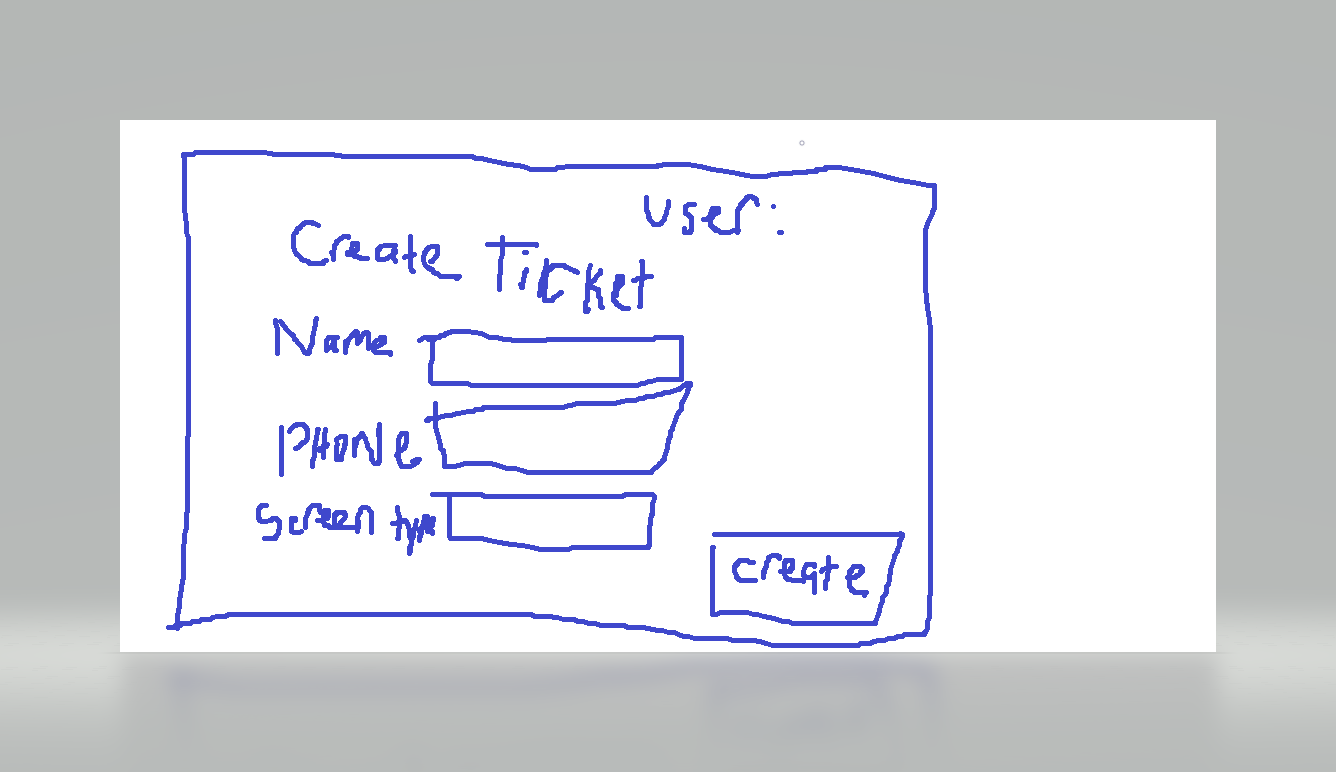 user:
Create Ticket
Name
PHONe
screen type
create